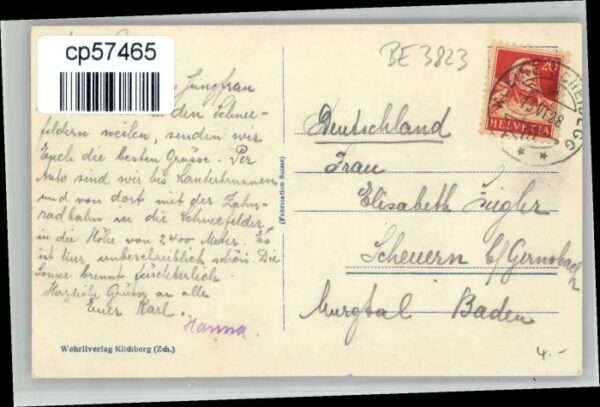 cp57465
BE 3823
Jungfrau
in den Schnee-
feldern weilen, senden wir
Euch die besten Grüsse. Per
Auto sind wir bis Lauterbrunnen
und von dort mit der Zahn-
radbahn in die Schneefelder
in die Höhe von 2400 Meter. Es
ist hier unbeschreiblich schön. Die
Sonne brennt fürchterlich.
Herzliche Grüsse an alle
Euer Karl.
Hanna.
20
HELVETIA
SCHEIDEGG
VI.28
Deutschland
Frau
Elisabeth Ziegler
Scheuern b/Gernsbach
Murgtal Baden
4.-
(Fabrication Suisse)
Wehrliverlag Kilchberg (Zch.)